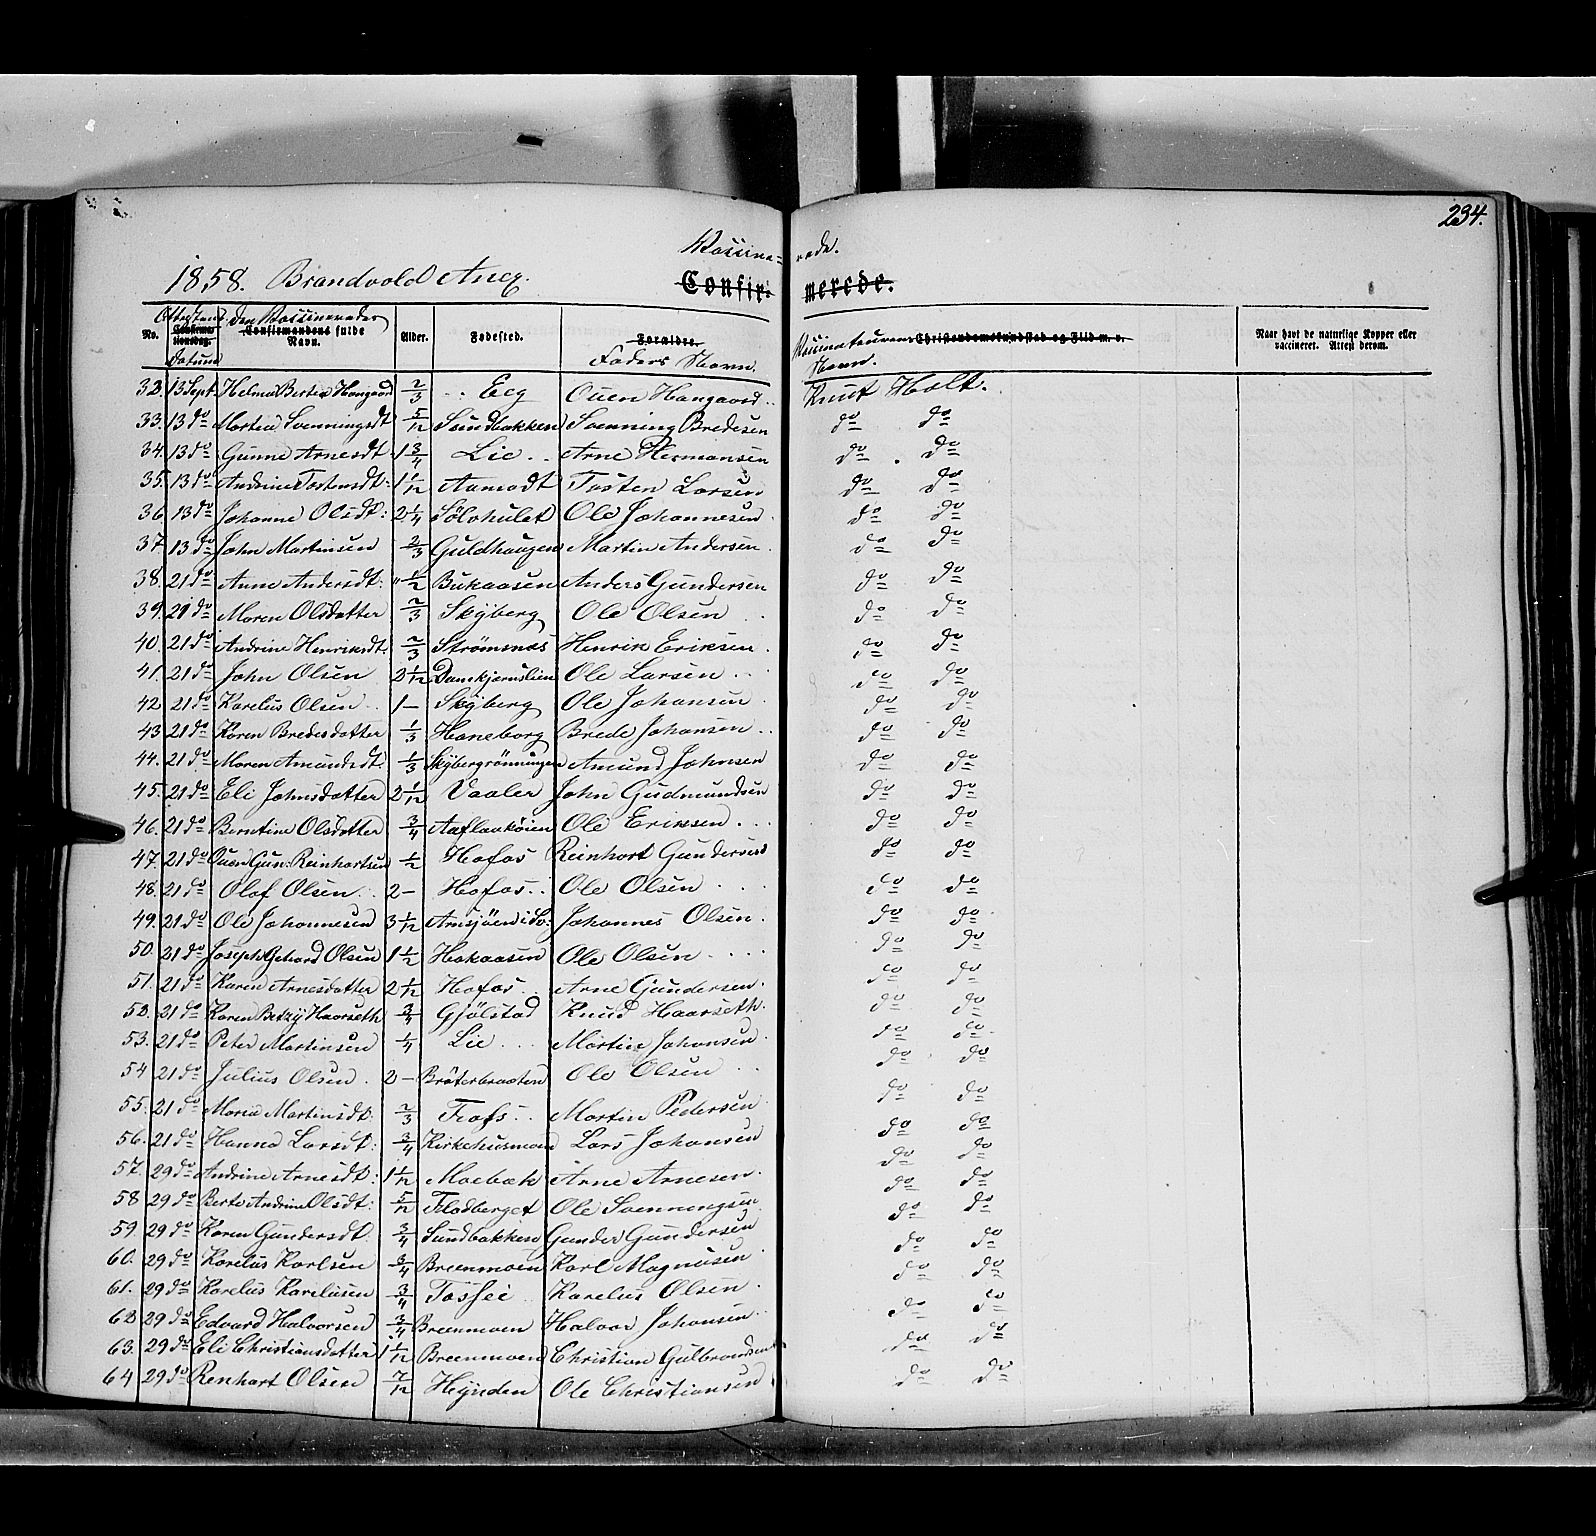 234.
Vaccine= rede.
1858. Brandvold Anex.
Confir= merede.
No. Attestens Confirmationsdag. datum den Vaccineredes Confirmandens fulde Navn. Alder. Fødested. Forældre. Faders Navn. Vaccinateurens Navn. Christendomskundskab og Flid m. v. Naar havt de naturlige Kopper eller vaccineret. Attest derom.
32. 13 Sept. Helma Bertea Hangaard 2/3 Eeg Ouen Hangaard Knut Holt.
33. 13 do Martea Svenningsdt 5/12 Sandbakken Svenning Bredesen do do
34. 13 do Gunne Arnesdt 1 3/4 Lie Arne Hermansen do do
35. 13 do Andrine Tostensdt: 1 1/12 Aamodt Tosten Larsen do do
36 13 do Johanne Olsdt: 2 1/4 Sölvhulet Ole Johannesen do do
37 13 do John Martinsen 2/3 Guldhaugen Martin Andersen do do
38. 21 do Anne Andersdt: " 1/2 Bukaasen Anders Gundersen do do
39. 21 do Maren Olsdatter 2/3 Skÿberg Ole Olsen do do
40. 21 do Andrine Henriksdt. 2/3 Strømsnæs Henrik Eriksen do do
41. 21 do John Olsen 2 1/12 Damkjernslien Ole Larsen do do
42 21 do Karelius Olsen 1 – Skÿberg Ole Johansen do do
43 21 do Karen Bredesdatter 1/3 Haneborg Brede Johansen do do
44. 21 do Maren Amundsdt. 1/3 Skÿbergrönningen Amund Johnsen do do
45. 21 do Eli Johnsdatter 2 1/12 Vaaler John Gudmundsen do do
46. 21 do Berntine Olsdatter 3/4 Aaflaakøien Ole Erikssen do do
47. 21 do Ouen Gun. Reinhartsen 1/2 Hofos Reinhart Gundersen do do
48. 21 do Olaf Olsen 2 – Hofos Ole Olsen do do
49. 21 do Ole Johannesen 3 1/12 Arnsjøen i Sv: Johannes Olsen do do
50. 21 do Joseph Gehard Olsen 1 1/2 Hakaasen Ole Olsen do do
51. 21 do Karen Arnesdatter 2 1/12 Hofos Arne Gundersen do do
52. 21 do Karen Betzÿ Haarseth 3/4 Gjölstad Knud Haarseth do do
53. 21 do Peter Martinsen 1/4 Lie Martin Johansen do do
54 21 do Julius Olsen 2 – Bråterbraaten Ole Olsen do do
55. 21 do Maren Martinsdt: 2/3 Frafs Martin Pedersen do do
56. 21 do Hanna Larsdt: 3/4 Kirkehusmoen Lars Johansen do do
57. 29 do Andrine Arnesdt: 1 1/12 Moebæk Arne Arnesen do do
58 29 do Berte Andrine Olsdt: 5/12 Flodberget Ole Svenningsen do do
59. 29 do Karen Gundersdt. 3/4 Sundbakken Gunder Gundersen do do
60. 29 do Karelius Karlsen 3/4 Breenmoen Karl Magnusen do do
61. 29 do Karelus Karelusen 3/4 Tossei Karelus Olsen do do
62 29 do Edvard Halvorsen 3/4 Breenmoen Halvor Johansen do do
63. 29 do Eli Christiansdatter 1 1/12 Breenmoen Christian Gulbrandsen do do
64 29 do Renhart Olsen 7/12 Heÿnden Ole Christiansen do do